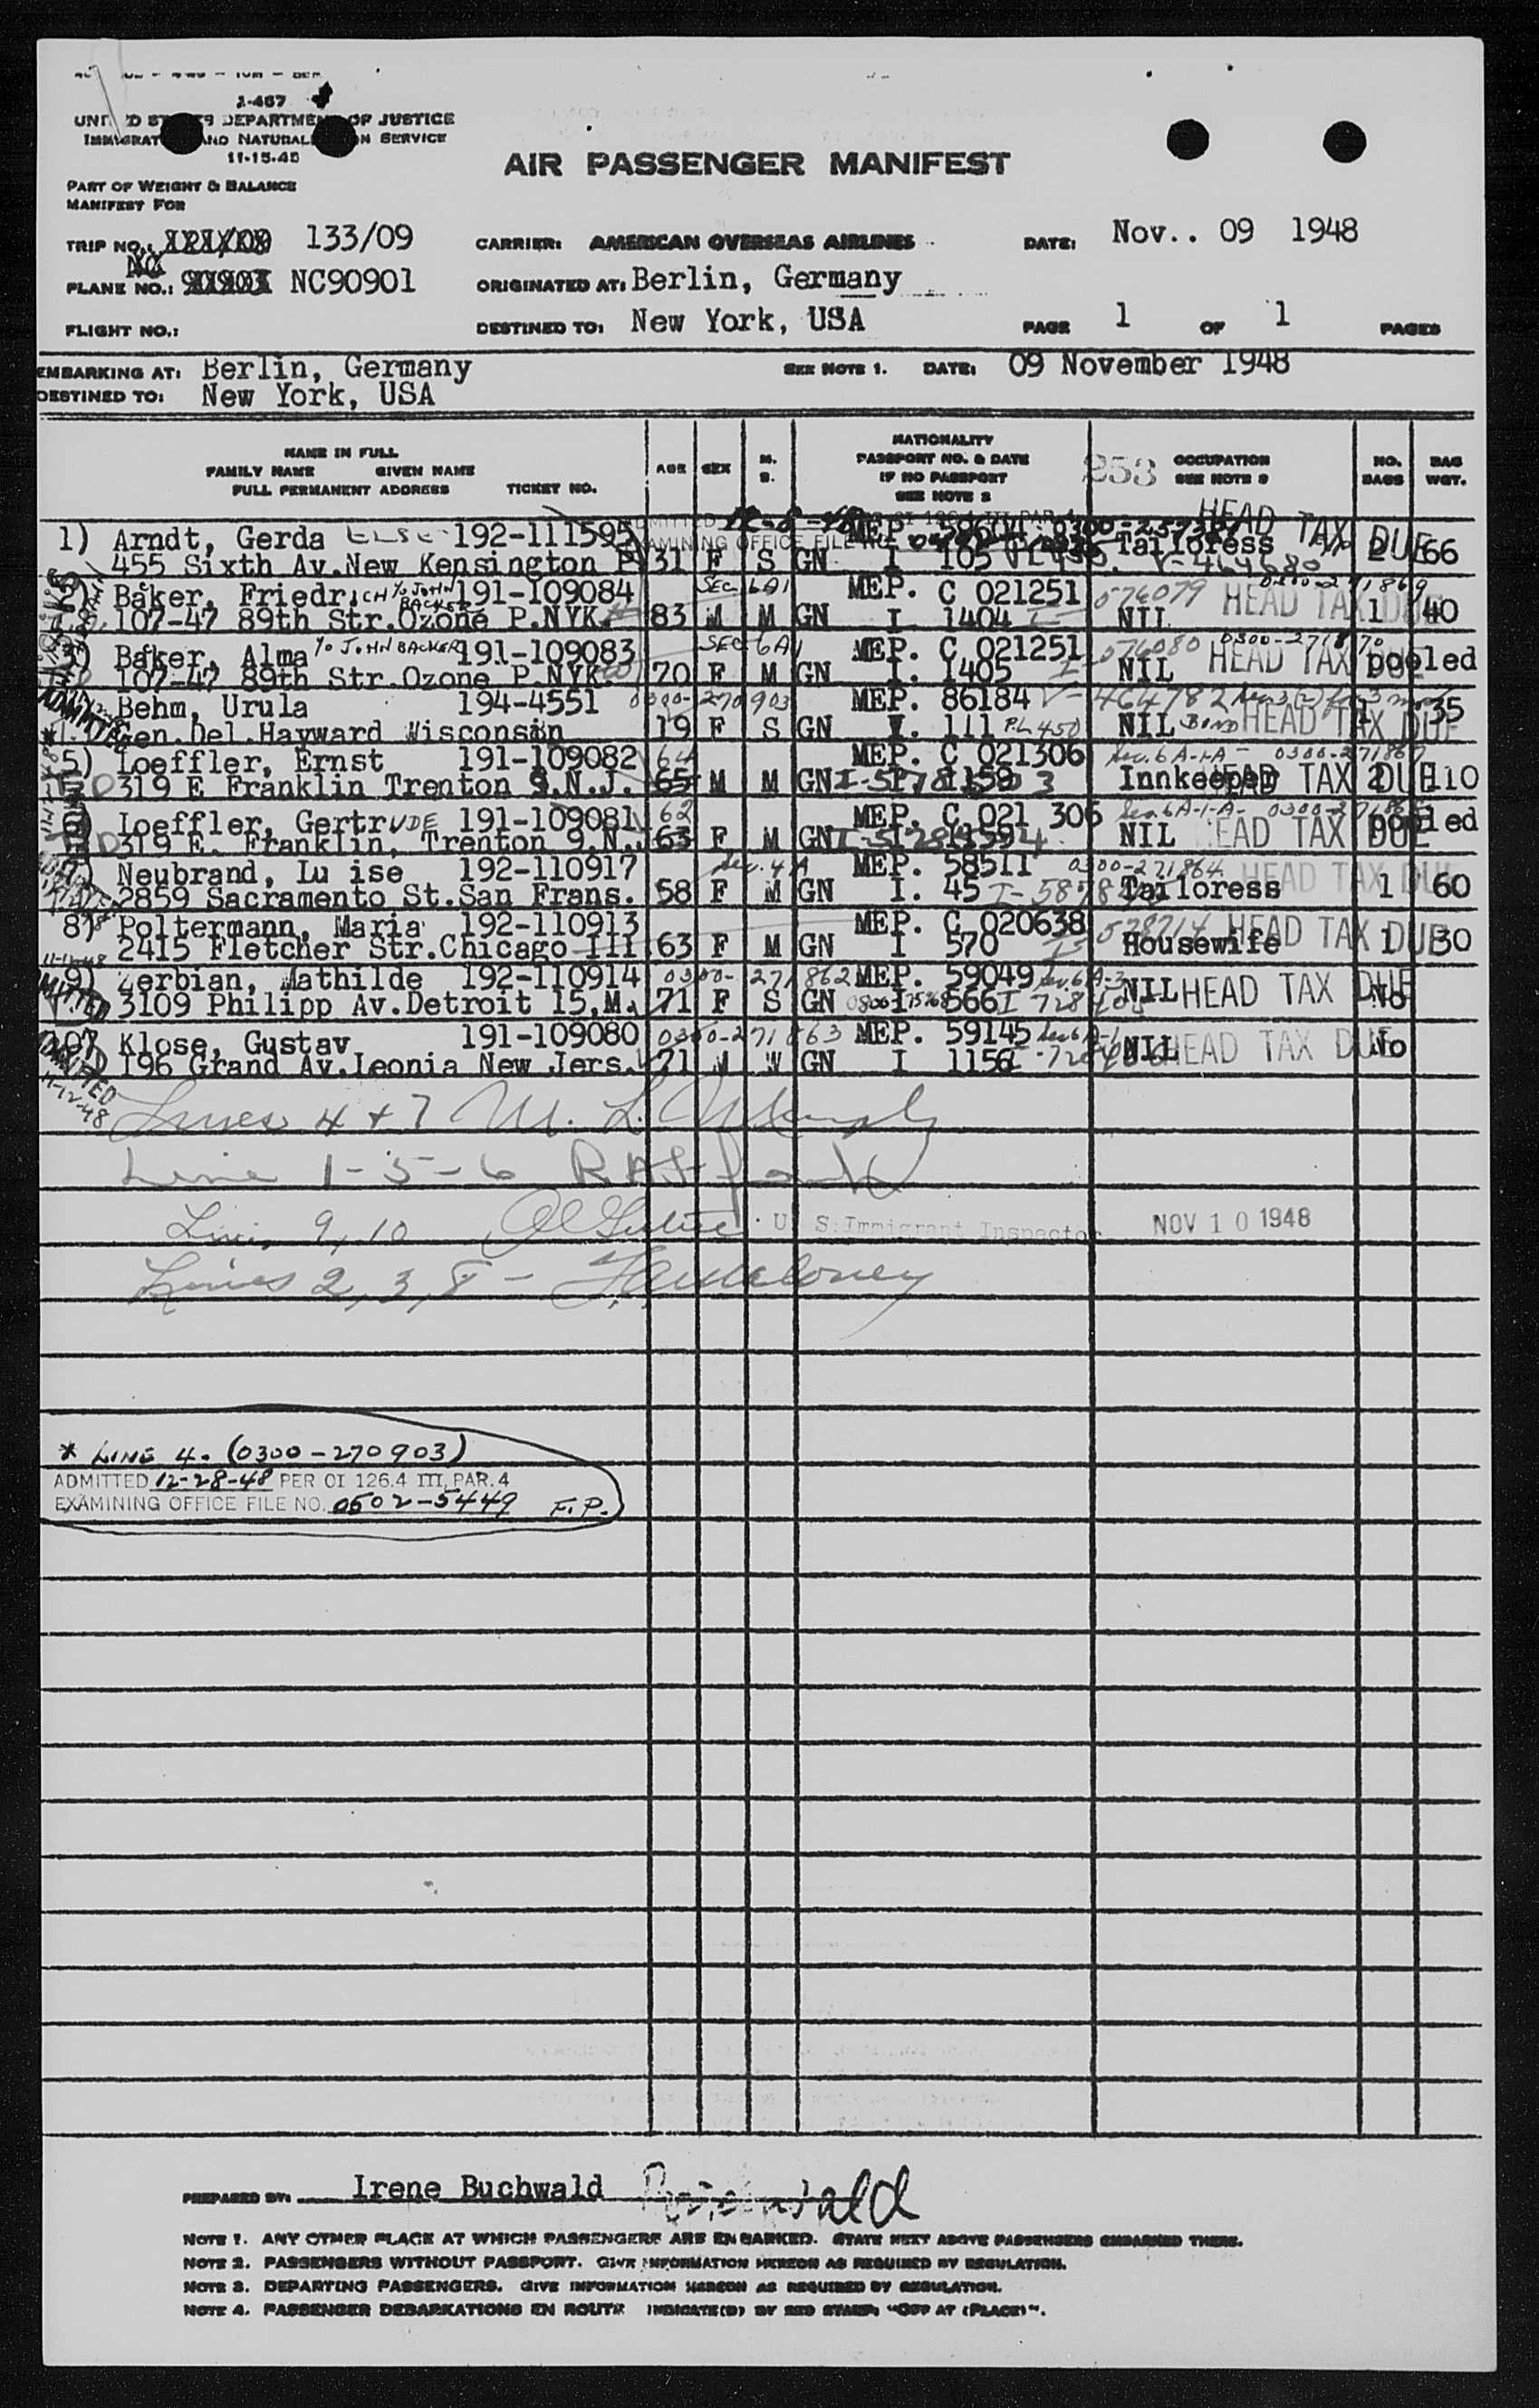 1-467
UNITED STATES DEPARTMENT OF JUSTICE
IMMIGRATION AND NATURALIZATION SERVICE
11-15-45
AIR PASSENGER MANIFEST
PART OF WEIGHT & BALANCE
MANIFEST FOR
TRIP NO.: 133/09 CARRIER: AMERICAN OVERSEAS AIRLINES DATE: Nov.. 09 1948
PLANE NO.: NC90901 ORIGINATED AT: Berlin, Germany
FLIGHT NO.: DESTINED TO: New York, USA PAGE 1 OF 1 PAGES
EMBARKING AT: Berlin, Germany SEE NOTE 1. DATE: 09 November 1948
DESTINED TO: New York, USA
NAME IN FULL
FAMILY NAME GIVEN NAME
FULL PERMANENT ADDRESS TICKET NO. AGE SEX M. S. NATIONALITY PASSPORT NO. & DATE IF NO PASSPORT SEE NOTE 2 253 OCCUPATION SEE NOTE 3 NO. BAGS BAG WGT.
1) Arndt, Gerda ELSE 192-111595 MEP. HEAD TAX DUE
455 Sixth Av.New Kensington P 31 F S GN I 105 Tailoress 2 66
2) Baker, Friedr.ICH % JOHN BACKER 191-109084 SEC 6A1 MEP. C 021251 576079 HEAD TAX DUE
107-47 89th Str.Ozone P.NYK. 83 M M GN I 1404 NIL 1 40
3) Baker, Alma % JOHN BACKER 191-109083 SEC 6A1 MEP. C 021251 576080 0300-271870 HEAD TAX DUE
107-47 89th Str.Ozone P.NYK. 70 F M GN I. 1405 NIL pooled
4) Behm, Urula 194-4551 0300-270903 MEP. 86184 V-464782
Gen.Del.Hayward Wisconsin 19 F S GN V. 111 PL 450 NIL BOND HEAD TAX DUE 1 35
5) Loeffler, Ernst 191-109082 64 MEP. C 021306 Sec.6A-1-A- 0300-271867
319 E Franklin Trenton 9.N.J. 65 M M GN 1158 Innkeeper HEAD TAX DUE 2 110
6) Loeffler, GertrUDE 191-109081 62 MEP. C 021 306 Sec.6A-1-A- pooled
319 E. Franklin, Trenton 9.N. 63 F M GN 1159 NIL HEAD TAX DUE
7) Neubrand, Lu ise 192-110917 Sec. 4A MEP. 58511 0300-271864 HEAD TAX DUE
2859 Sacramento St.San Frans. 58 F M GN I. 45 Tailoress 1 60
8) Poltermann, Maria 192-110913 MEP. C 020638 578714 HEAD TAX DUE
2415 Fletcher Str.Chicago Ill 63 F M GN I 570 Housewife 1 30
9) Zerbian, Mathilde 192-110914 0300-271862 MEP. 59049
3109 Philipp Av.Detroit 15.M. 71 F S GN I 566 NIL HEAD TAX DUE No
10) Klose, Gustav 191-109080 0300-271863 MEP. 59145
196 Grand Av.Leonia New Jers. 71 M W GN I 1156 NIL HEAD TAX DUE No
ADMITTED
11-12-48
Lines 4 + 7 M. L.
Line 1-5-6
Lines 9, 10 U. S. Immigrant Inspector NOV 10 1948
Lines 2, 3, 8 -
* LINE 4. (0300-270903)
ADMITTED 12-28-48 PER OI 126.4 III, PAR. 4
EXAMINING OFFICE FILE NO. 0502-5449 F.P.
PREPARED BY: Irene Buchwald Buchwald
NOTE 1. ANY OTHER PLACE AT WHICH PASSENGERS ARE ENBARKED. STATE NEXT ABOVE PASSENGERS EMBARKED THERE.
NOTE 2. PASSENGERS WITHOUT PASSPORT. GIVE INFORMATION HEREON AS REQUIRED BY REGULATION.
NOTE 3. DEPARTING PASSENGERS. GIVE INFORMATION HEREON AS REQUIRED BY REGULATION.
NOTE 4. PASSENGER DEBARKATIONS EN ROUTE INDICATE(D) BY RED STAMP: "OFF AT (PLACE)".